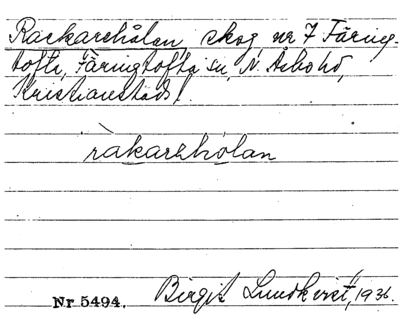 Rackarehålan, skog, nr 7 Färing-
tofta, Färingtofta sn, N. Åsbo hd,
Kristianstads l.
rakarehòlan
Nr 5494. Birgit Lundkvist, 1936.